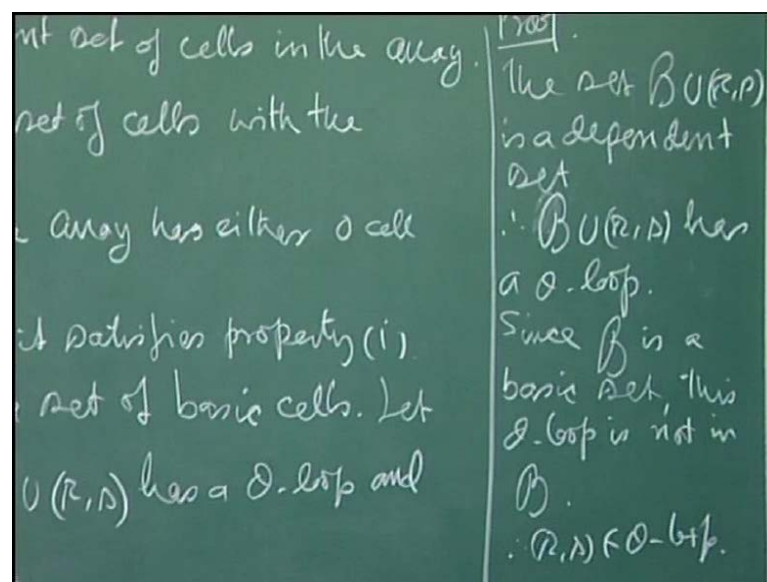 nt set of cells in the array.
set of cells with the
array has either 0 cell
it satisfies property (i)
set of basic cells. Let
∪(r,s) has a θ-loop and
Proof.
The set B∪(r,s)
is a dependent
set
∴ B∪(r,s) has
a θ-loop.
Since B is a
basic set, this
θ-loop is not in
B.
∴ (r,s) ∈ θ-loop.